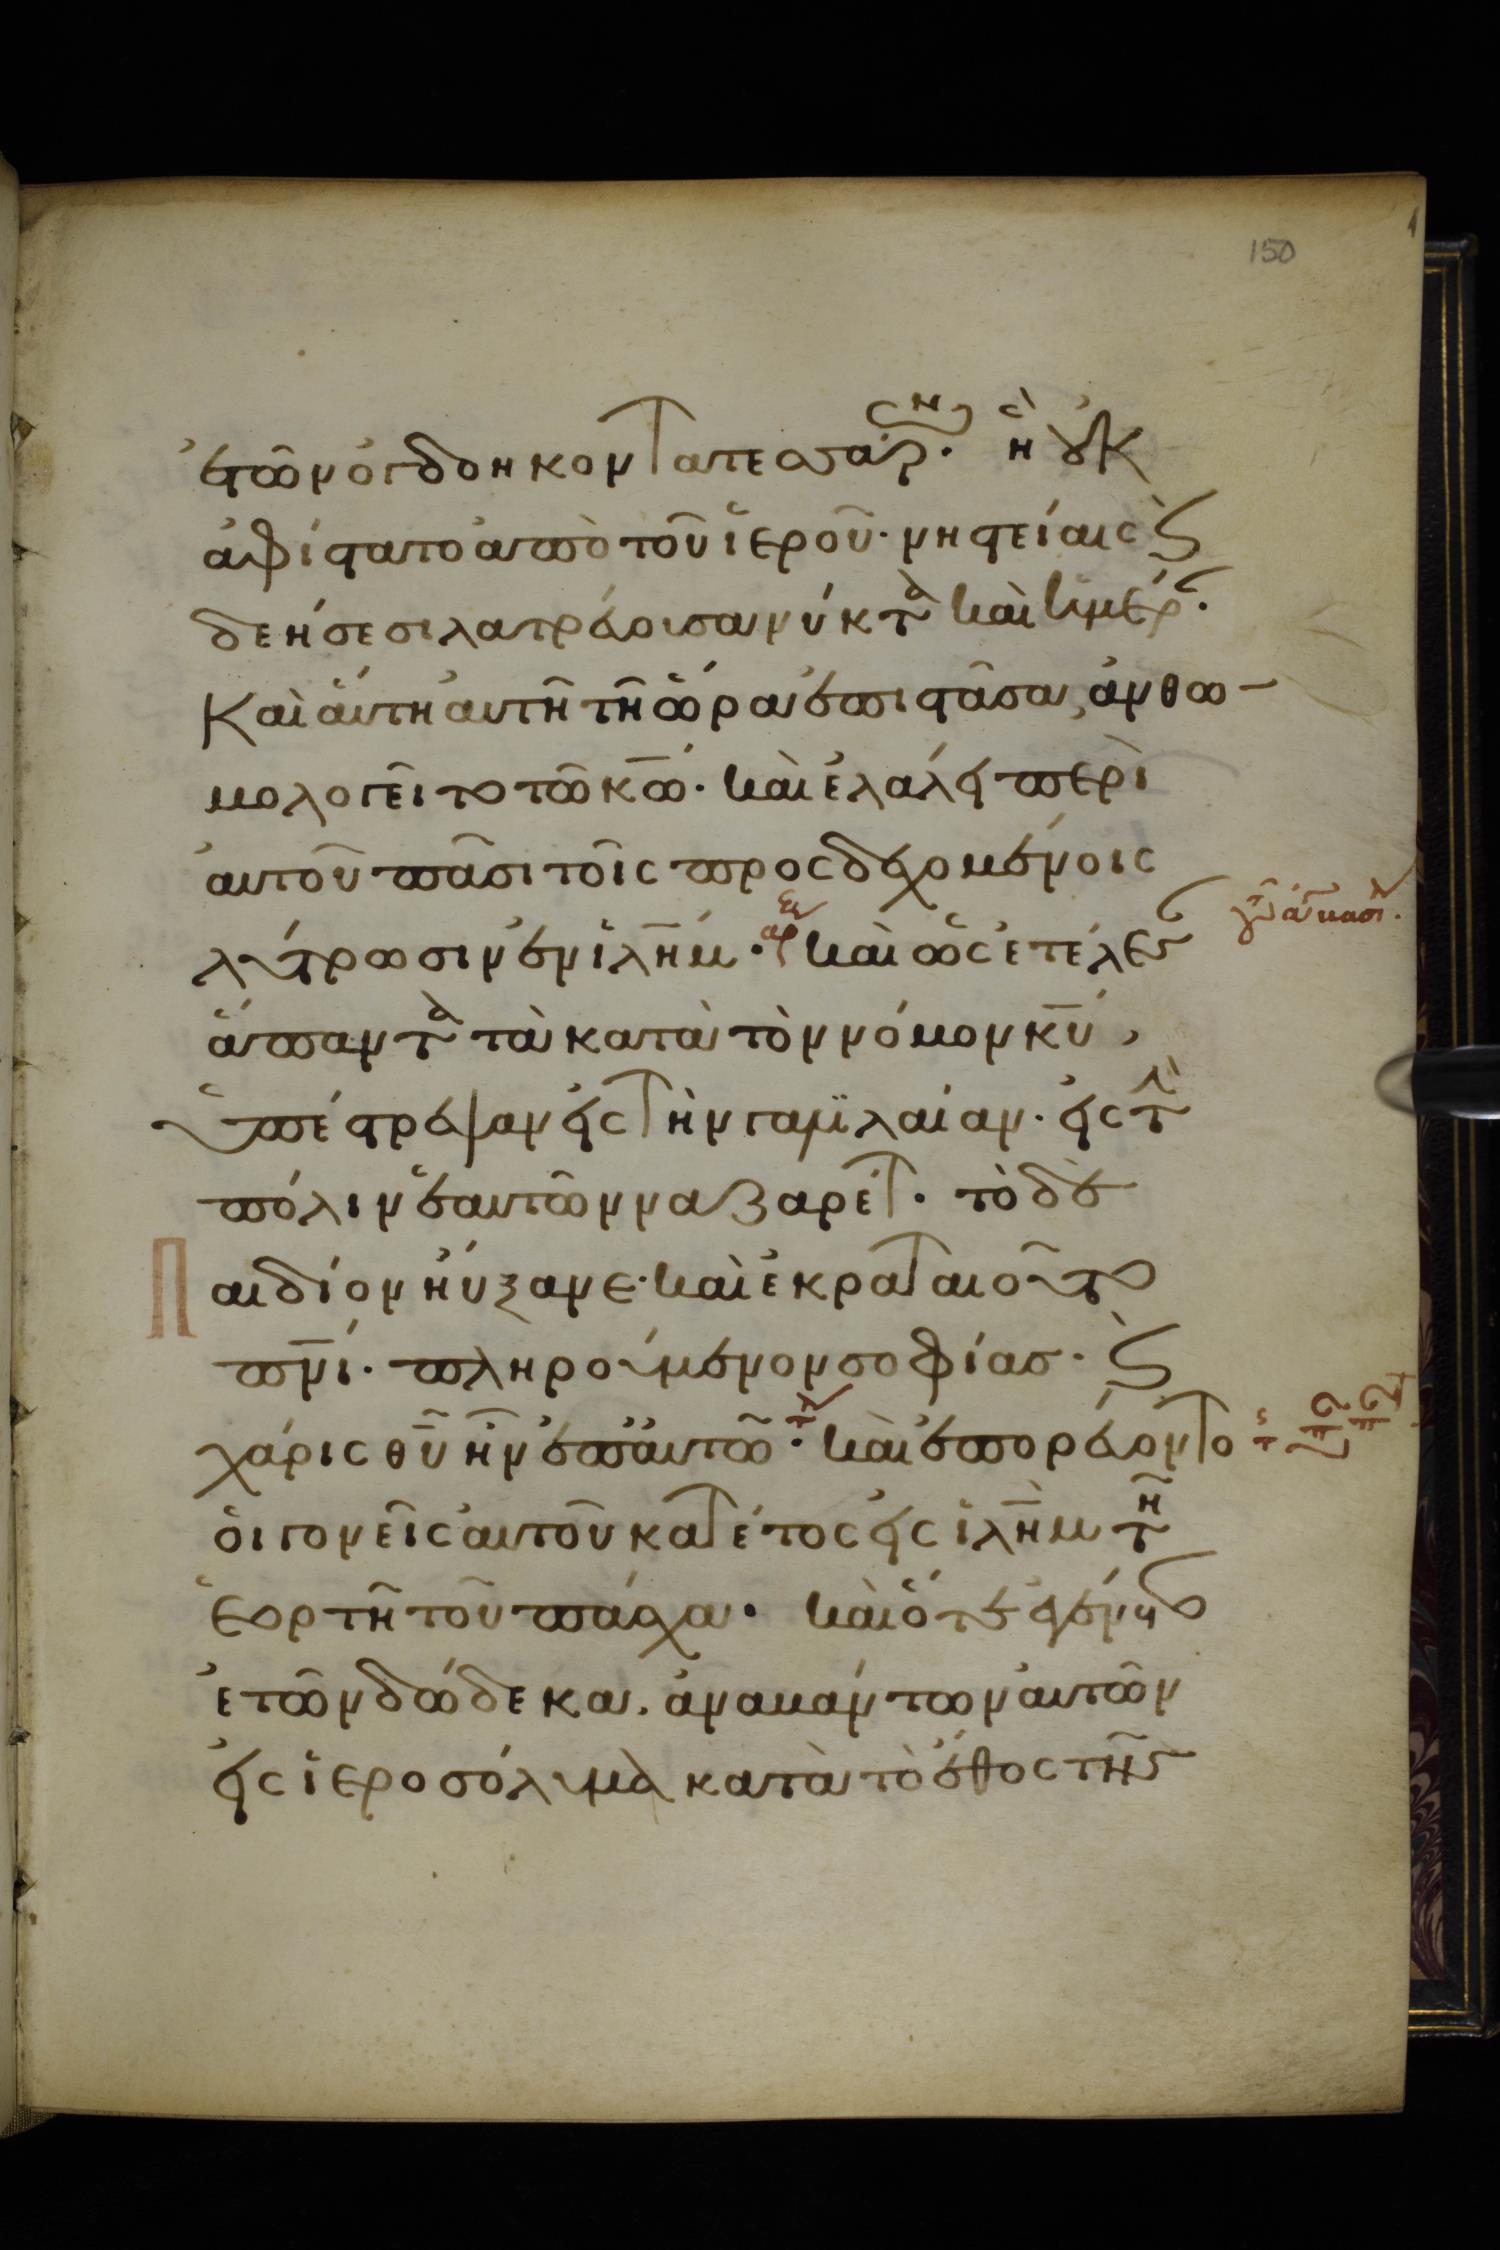 150
ἐτῶν ὀγδοηκοντατεσσάρων· ἣ οὐκ
ἀφίστατο ἀπὸ τοῦ ἱεροῦ· νηστείαις καὶ
δεήσεσι λατρεύουσα νύκτα καὶ ἡμέραν·
Καὶ αὕτη αὐτῇ τῇ ὥρα ἐπιστᾶσα, ἀνθω
μολογεῖτο τῶ κω· καὶ ἐλάλει περὶ
αὐτοῦ πᾶσι τοῖς προσδεχομένοις
λύτρωσιν ἐν ἰλημ· καὶ ὡς ἐτέλεσαν
ἅπαντα τὰ κατὰ τὸν νόμον κυ,
ὑπέστρεψαν εἰς τὴν γαλιλαίαν· εἰς τὴν
πόλιν ἑαυτῶν ναζαρέτ· τὸ δὲ
Παιδίον ηὔξανε· καὶ ἐκραταιοῦτο
πνι· πληρούμενον σοφίας· καὶ
χάρις θυ ἦν ἐπ' αὐτῶ· καὶ ἐπορεύοντο
οἱ γονεῖς αὐτοῦ κατ' έτος εἰς ἰλημ τῇ
ἑορτῇ τοῦ πάσχα· καὶ ὅτε ἐγένετο
ἐτῶν δώδεκα, ἀναβάντων αὐτῶν
εἰς ἱεροσόλυμα κατὰ τὸ ἔθος τῆς